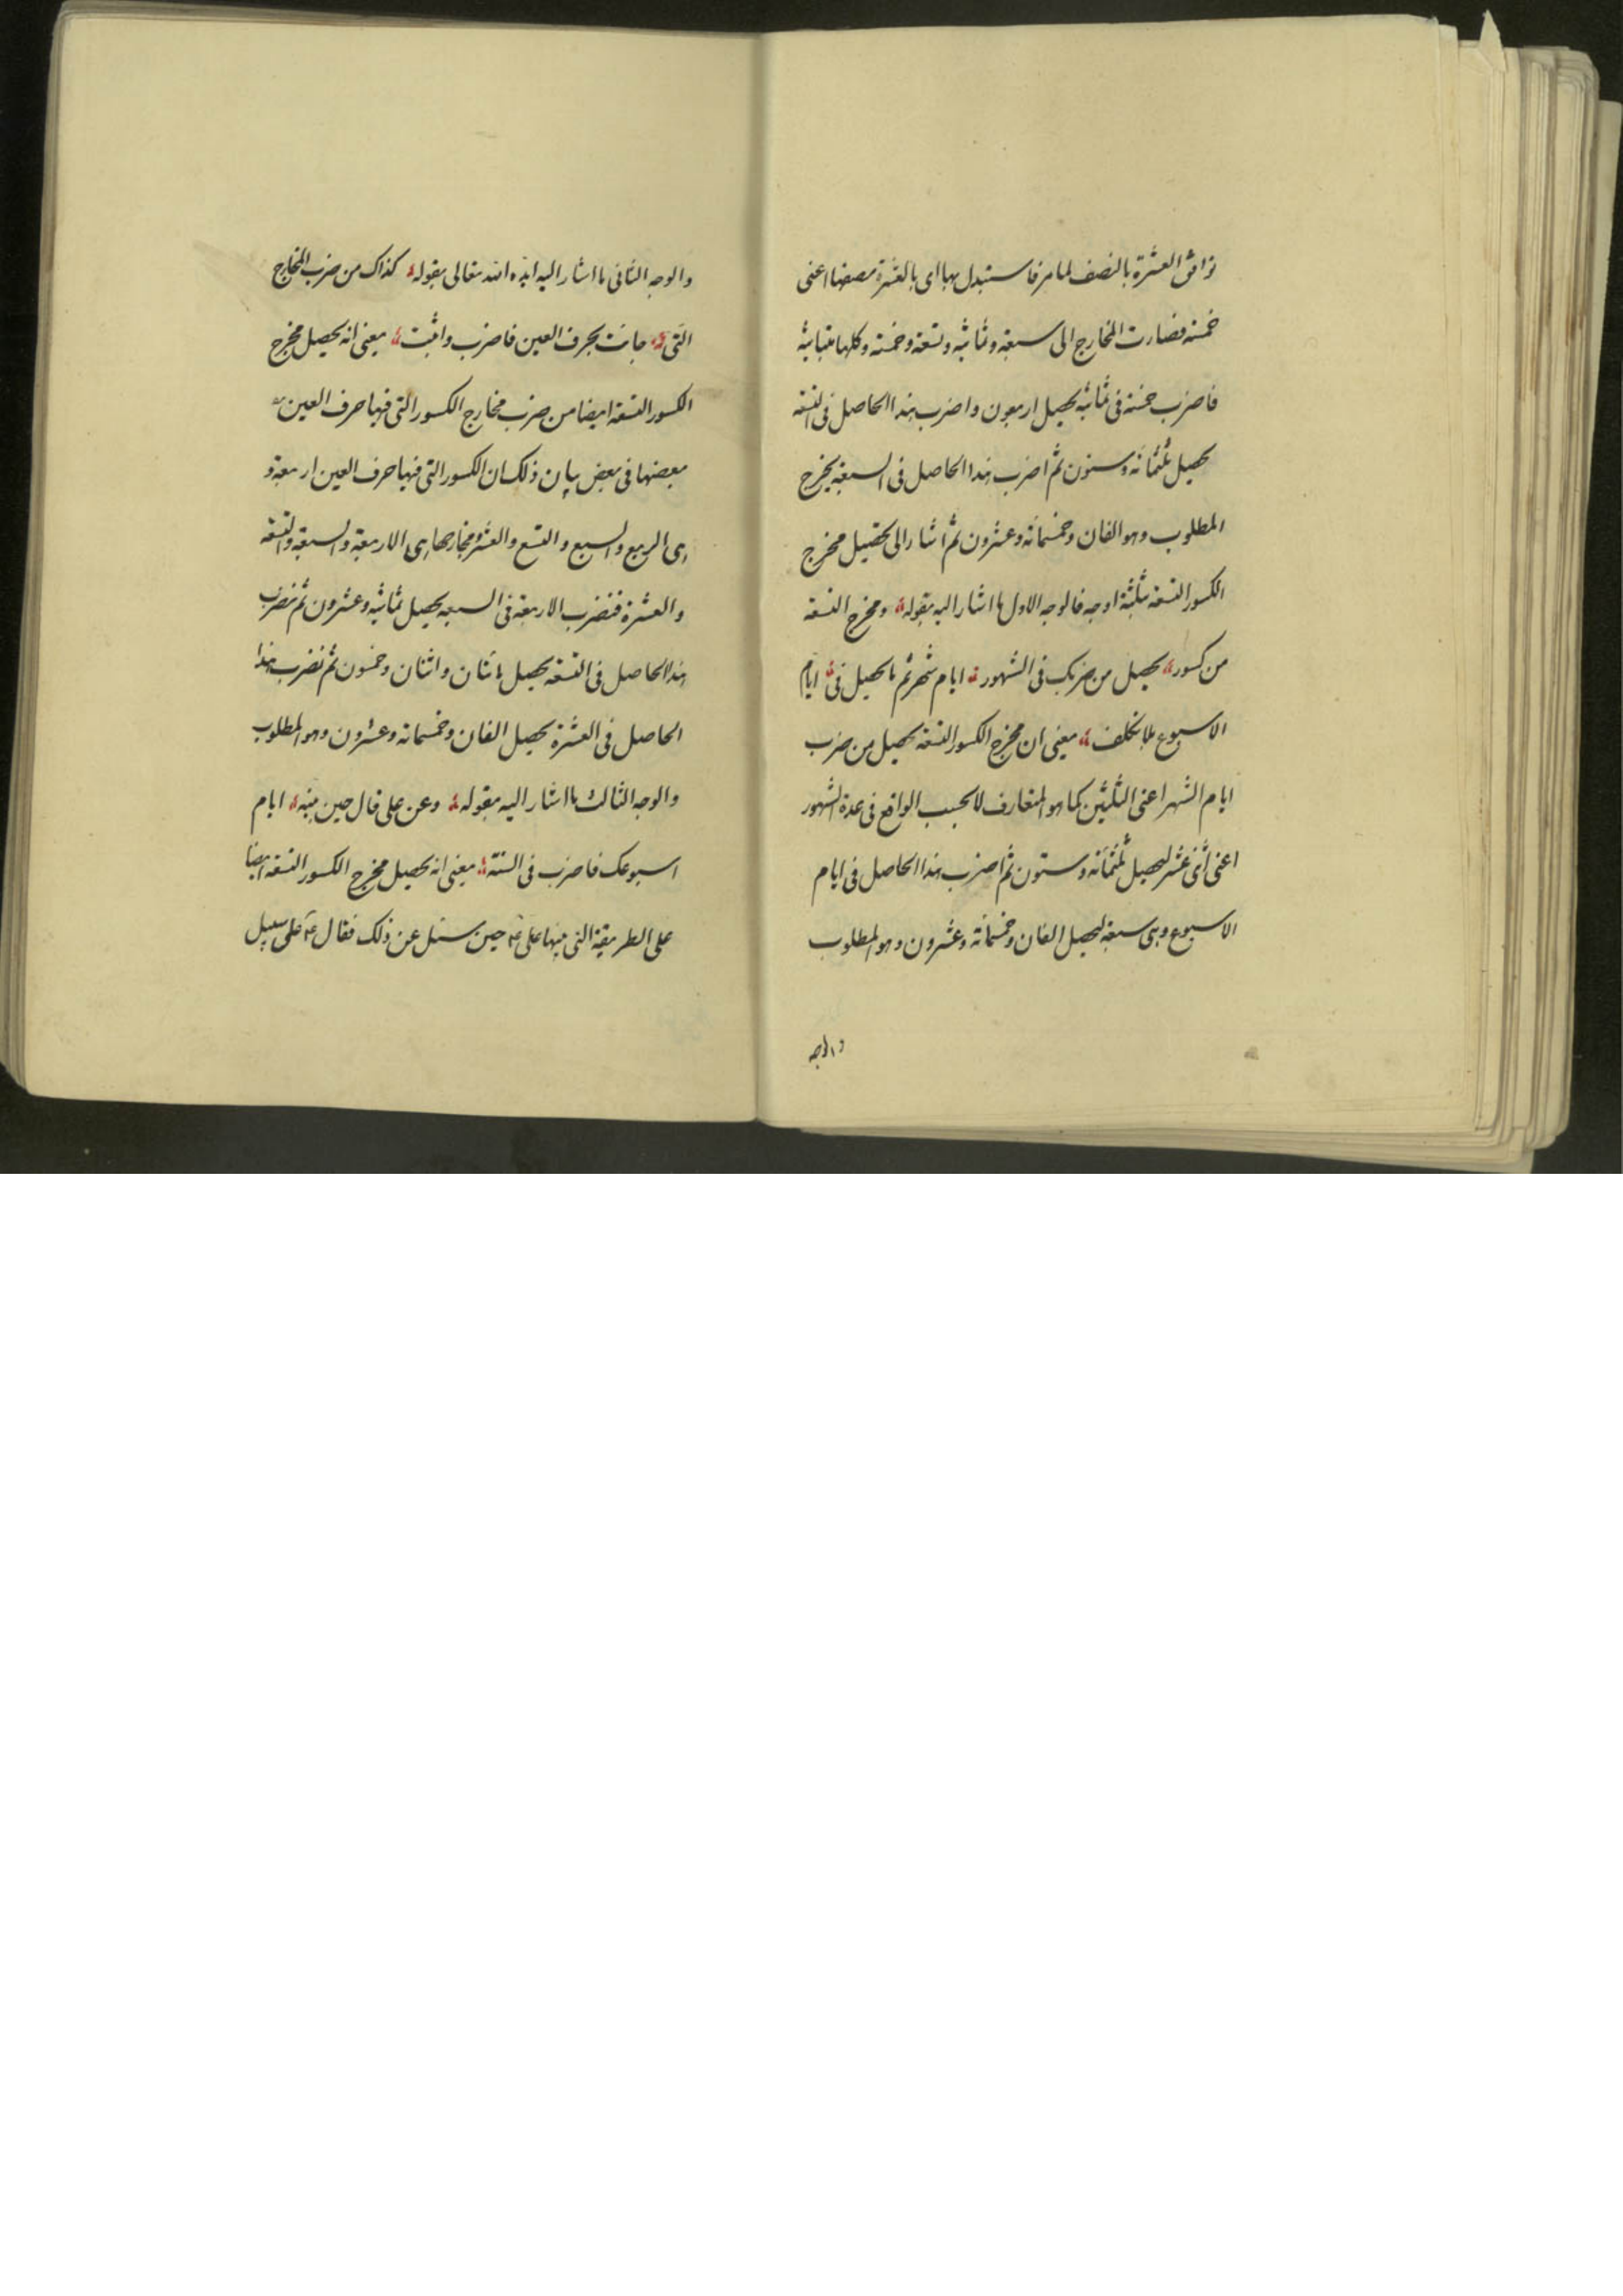 توافق العشرة بالنصف لما مر فاستبدل بها اى بالعشرة نصفها اعنى
خمسة فصارت المخارج الى سبعة وثمانية وتسعة وخمسة وكلها متباينة
فاضرب خمسة فى ثمانية يحصل اربعون واضرب هذا الحاصل فى التسعة
يحصل ثلثمائة وستون ثم اضرب هذا الحاصل فى السبعة يخرج
المطلوب وهو الفان وخمسمائة وعشرون ثم اشار الى تحصيل مخرج
الكسور التسعة بثلثة اوجه فالوجه الاول ما اشار اليه بقوله ومخرج التسعة
من كسور يحصل من ضربك فى الشهور ايام شهر ثم ما يحصل فى ايام
الاسبوع بلا تكلف يعنى ان مخرج الكسور التسعة يحصل من ضرب
ايام الشهر اعنى الثلثين كما هو المتعارف لا بحسب الواقع فى عدة الشهور
اعنى اثنى عشر ليحصل ثلثمائة وستون ثم اضرب هذا الحاصل فى ايام
الاسبوع وهى سبعة ليحصل الفان وخمسمائة وعشرون وهو المطلوب
والوجه
والوجه الثانى ما اشار اليه ايده الله تعالى بقوله كذاك من ضرب المخارج
التى جائت بحرف العين فاضرب واثبت يعنى انه يحصل مخرج
الكسور التسعة ايضا من ضرب مخارج الكسور التى فيها حرف العين
بعضها فى بعض بيان ذلك ان الكسور التى فيها حرف العين اربعة و
هى الربع والسبع والتسع والعشر ومخارجها هى الاربعة والسبعة والتسعة
والعشرة فنضرب الاربعة فى السبعه يحصل ثمانية وعشرون ثم نضرب
هذا الحاصل فى التسعة يحصل مائتان واثنان وخمسون ثم نضرب هذا
الحاصل فى العشرة يحصل الفان وخمسمائة وعشرون وهو المطلوب
والوجه الثالث ما اشار اليه بقوله وعن على قال حين بينه ايام
اسبوعك فاضرب فى السنة يعنى انه يحصل مخرج الكسور التسعة ايضا
على الطريقة التى بينها على ع حين سئل عن ذلك فقال ع على سبيل